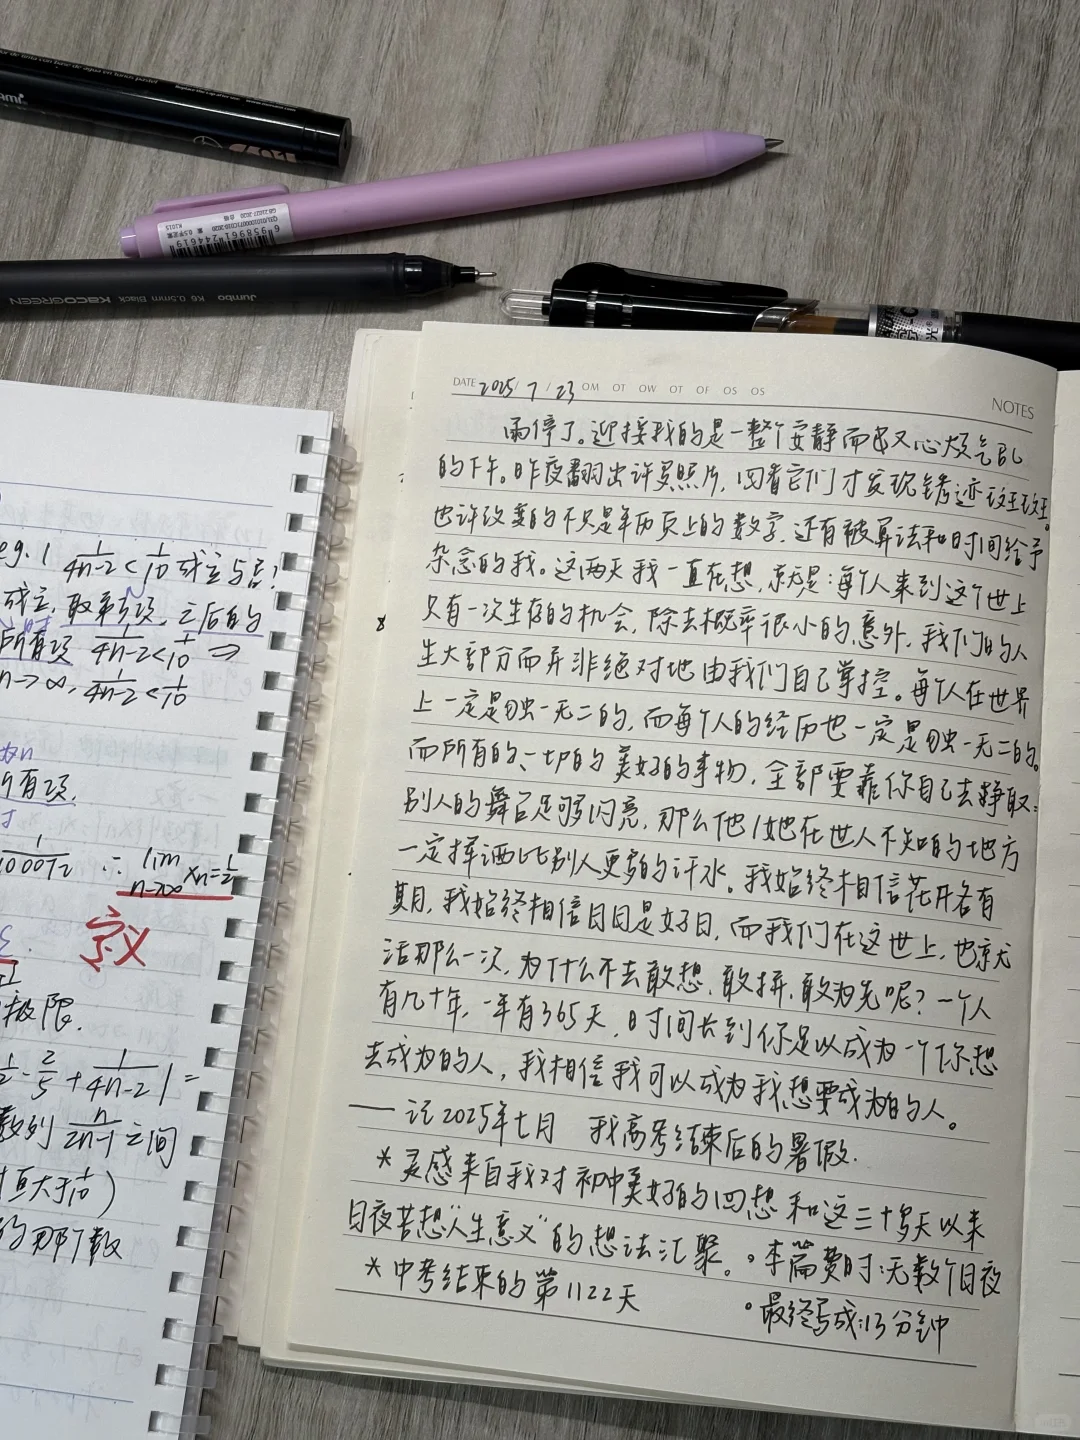 6958961244619
GB 21027-2020 合格
K1015
Jumbo K6 0.5mm Black KACOGREEN
eg.1 1/4n-2 < 1/10 成立与否?
成立, 取第3项, 之后的
所有项 1/4n-2 < 1/10 ⇒
n→∞, 1/4n-2 < 1/10
所有项.
∴ lim n→∞ xn=1/2
定义
极限.
1/2 - 2/5 + 1/4n-2 | =
数列 n/2n-1 之间
恒大于1/10)
的那个数
DATE 2025/7/23 OM OT OW OT OF OS OS
NOTES
雨停了。迎接我的是一整个安静而又心烦气乱
的下午。昨夜翻出许多照片,回看它们才发现锈迹斑斑。
也许改变的不只是年历页上的数字,还有被算法和时间给予
杂念的我。这两天我一直在想,就是:每个人来到这个世上
只有一次生存的机会,除去概率很小的意外,我们的人
生大部分而并非绝对地由我们自己掌控。每个人在世界
上一定是独一无二的,而每个人的经历也一定是独一无二的。
而所有的、一切的美好的事物,全部要靠你自己去挣取:
别人的舞台足够闪亮,那么他/她在世人不知的地方
一定挥洒比别人更多的汗水。我始终相信花开各有
期,我始终相信日日是好日,而我们在这世上,也就
活那么一次,为什么不去敢想、敢拼、敢为先呢?一个人
有几十年,一年有365天,时间长到你足以成为一个你想
去成为的人,我相信我可以成为我想要成为的人。
—— 记2025年七月 我高考结束后的暑假.
*灵感来自我对初中美好的回想和这三十多天以来
日夜苦想“人生意义”的想法汇聚。
。本篇费时:无数个日夜
*中考结束的第1122天
。最终写成:13分钟